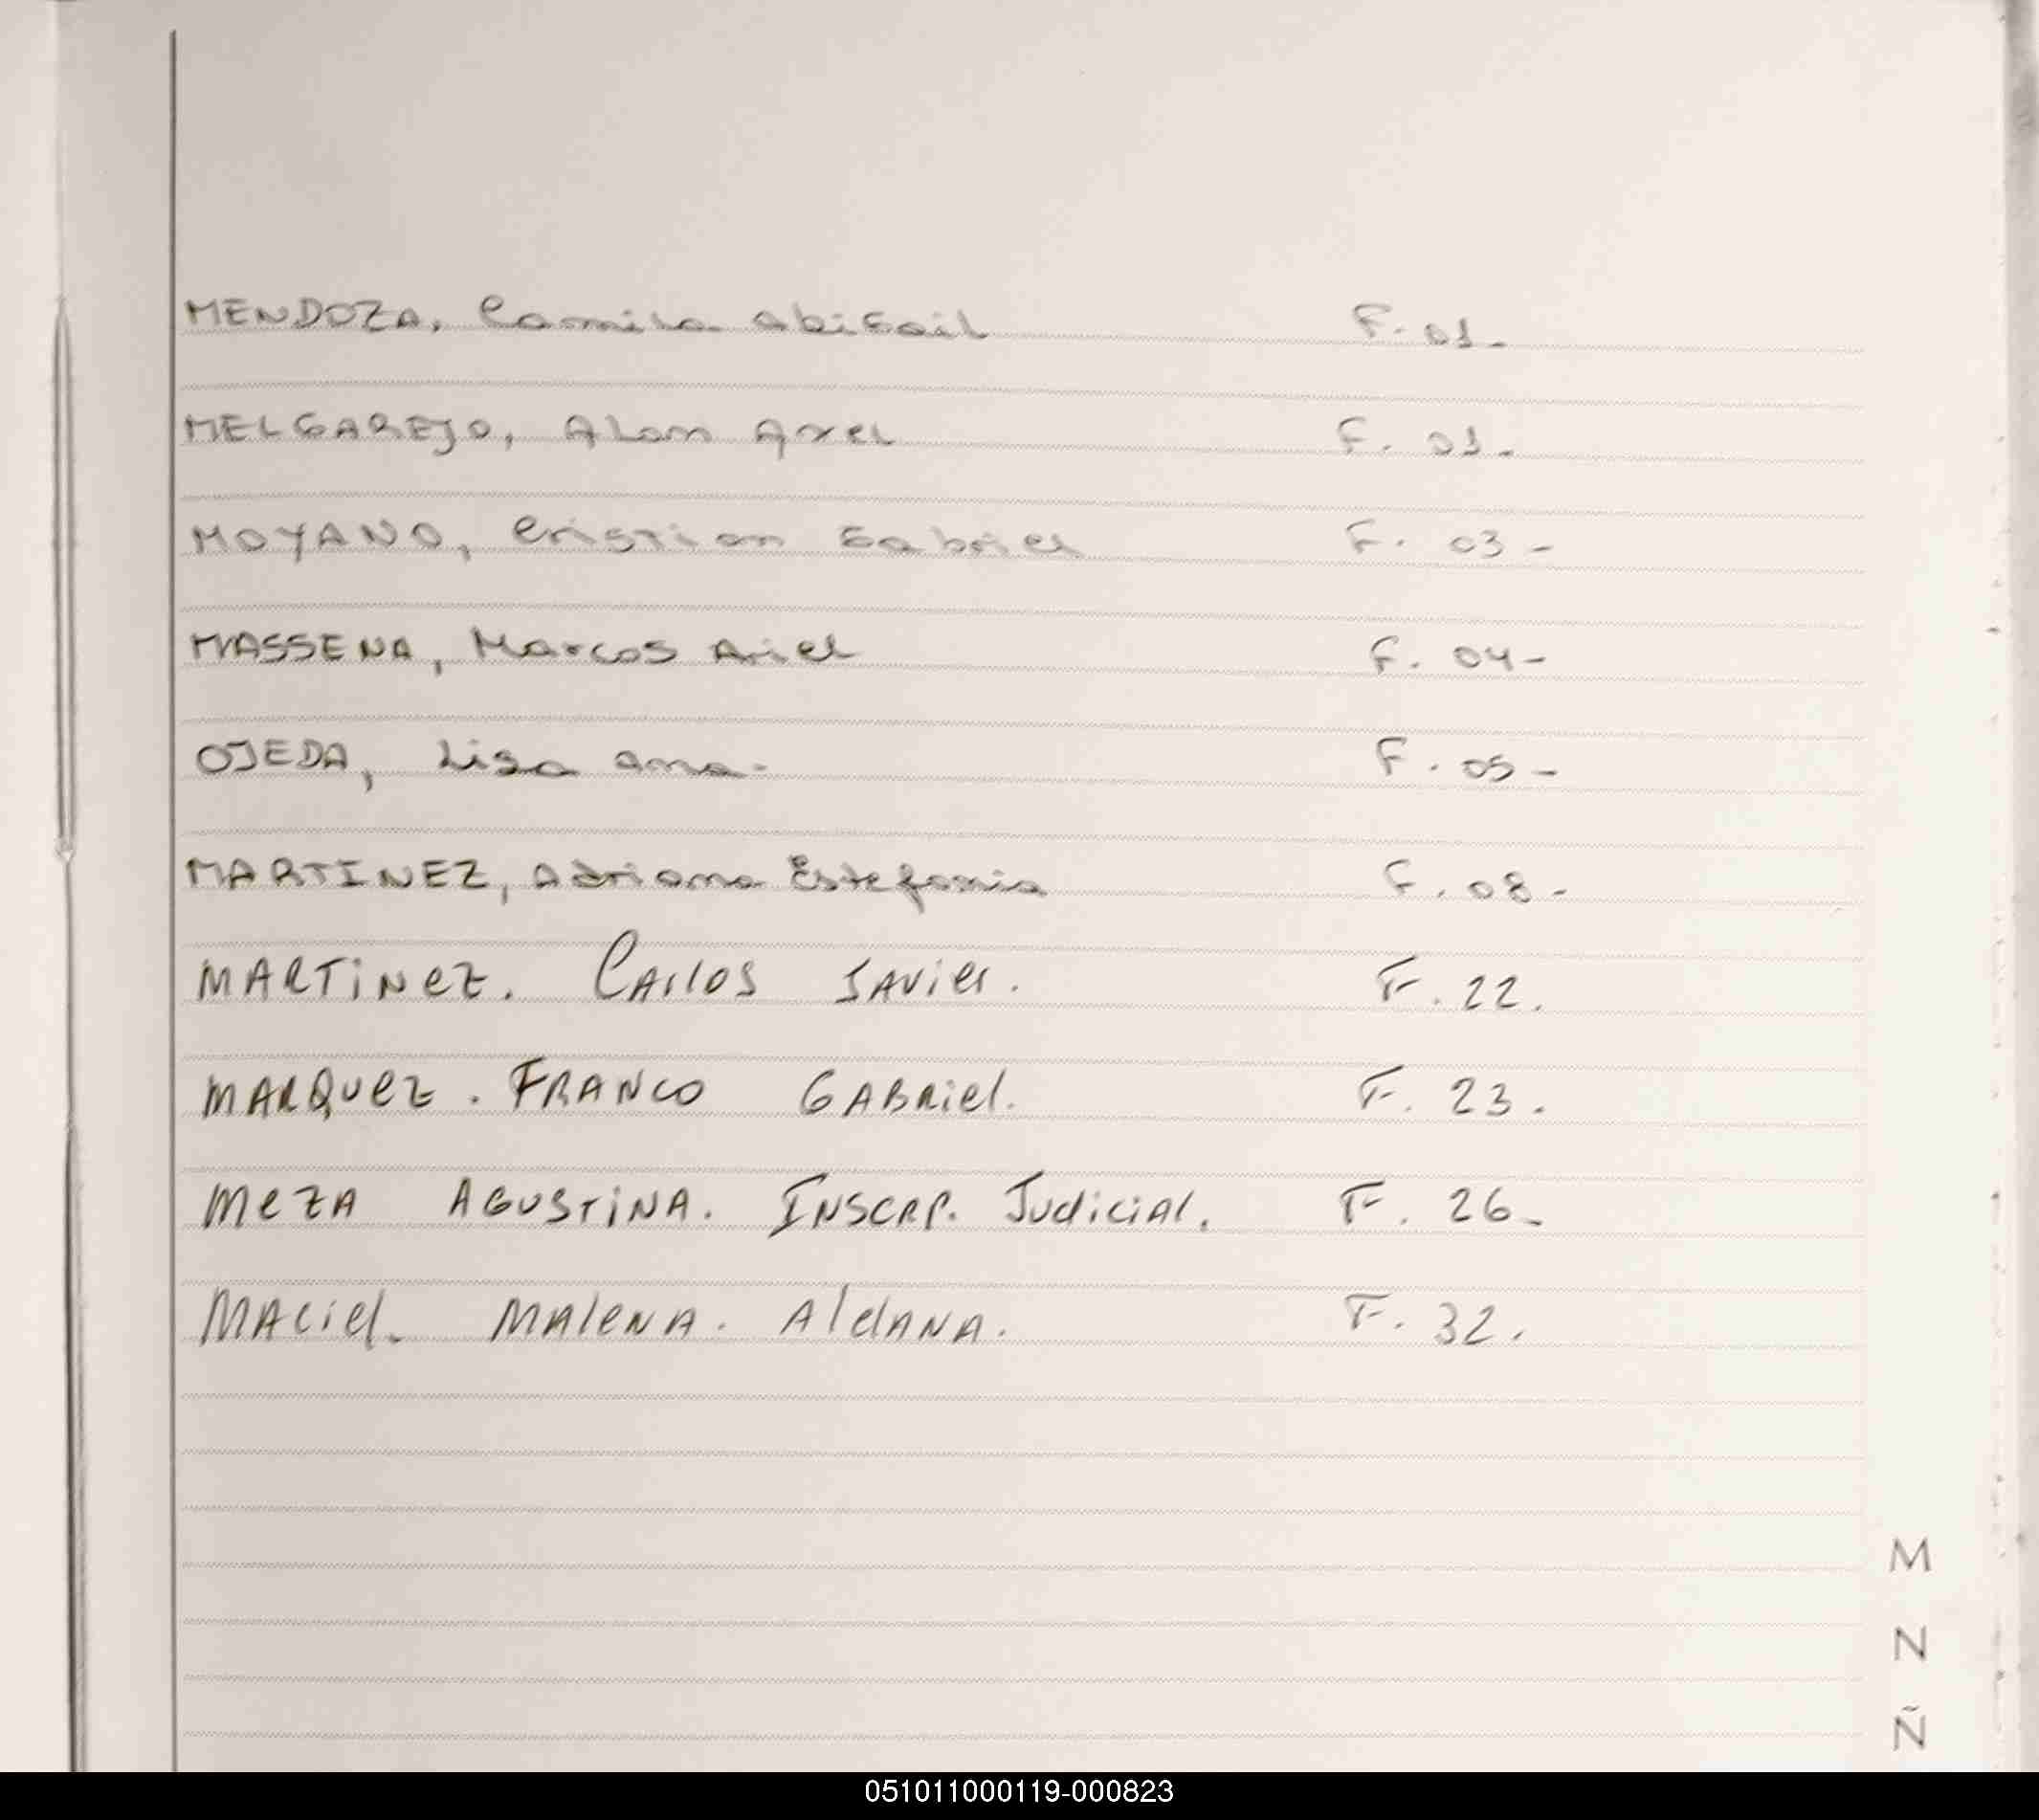 MENDOZA, Camila Abigail F. 01-
MELGAREJO, Alan Axel F. 01-
MOYANO, Cristian Gabriel F. 03-
MASSENA, Marcos Ariel F. 04-
OJEDA, Lisa Ana- F. 05-
MARTINEZ, Adriana Estefania F. 08-
MARTiNeZ. CARlos JAvier. F. 22.
MARQUeZ. FRANCO GABRiel. F. 23.
MeZA AGUSTiNA. INSCRP. JudiciAl. F. 26-
MAciel. MAleNA. AldANA. F. 32.
M
N
Ñ
051011000119-000823